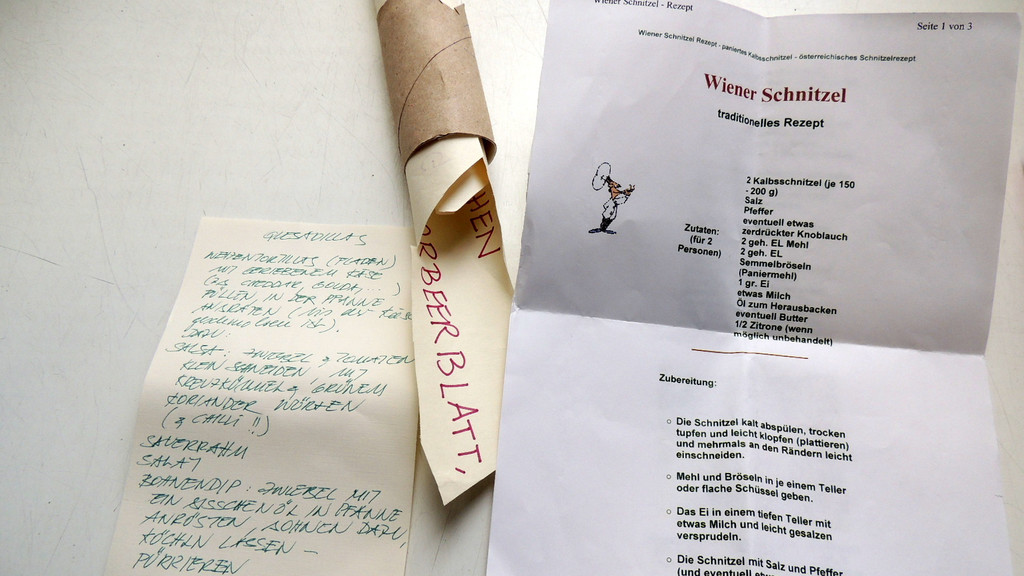 QUESADILLAS
WEIZENTORTILLAS (FLADEN)
MIT GERIEBENEM KÄSE
(z.B. CHEDDAR, GOUDA, ...)
FÜLLEN, IN DER PFANNE
ANBRATEN (bis der Käse
geschmolzen ist).
DAZU:
SALSA: ZWIEBEL & TOMATEN
KLEIN SCHNEIDEN, MIT
KREUZKÜMMEL & GRÜNEM
KORIANDER WÜRZEN
(& CHILLI !!)
SAUERRAHM
SALAT
BOHNENDIP: ZWIEBEL MIT
EIN BISSCHEN ÖL IN PFANNE
ANRÖSTEN, BOHNEN DAZU,
KÖCHELN LASSEN –
PÜRRIEREN
HEN
ORBEERBLATT,
Wiener Schnitzel - Rezept
Seite 1 von 3
Wiener Schnitzel Rezept - paniertes Kalbsschnitzel - österreichisches Schnitzelrezept
Wiener Schnitzel
traditionelles Rezept
Zutaten:
(für 2
Personen)
2 Kalbsschnitzel (je 150
- 200 g)
Salz
Pfeffer
eventuell etwas
zerdrückter Knoblauch
2 geh. EL Mehl
2 geh. EL
Semmelbröseln
(Paniermehl)
1 gr. Ei
etwas Milch
Öl zum Herausbacken
eventuell Butter
1/2 Zitrone (wenn
möglich unbehandelt)
Zubereitung:
Die Schnitzel kalt abspülen, trocken
tupfen und leicht klopfen (plattieren)
und mehrmals an den Rändern leicht
einschneiden.
Mehl und Bröseln in je einem Teller
oder flache Schüssel geben.
Das Ei in einem tiefen Teller mit
etwas Milch und leicht gesalzen
versprudeln.
Die Schnitzel mit Salz und Pfeffer
(und eventuell etw